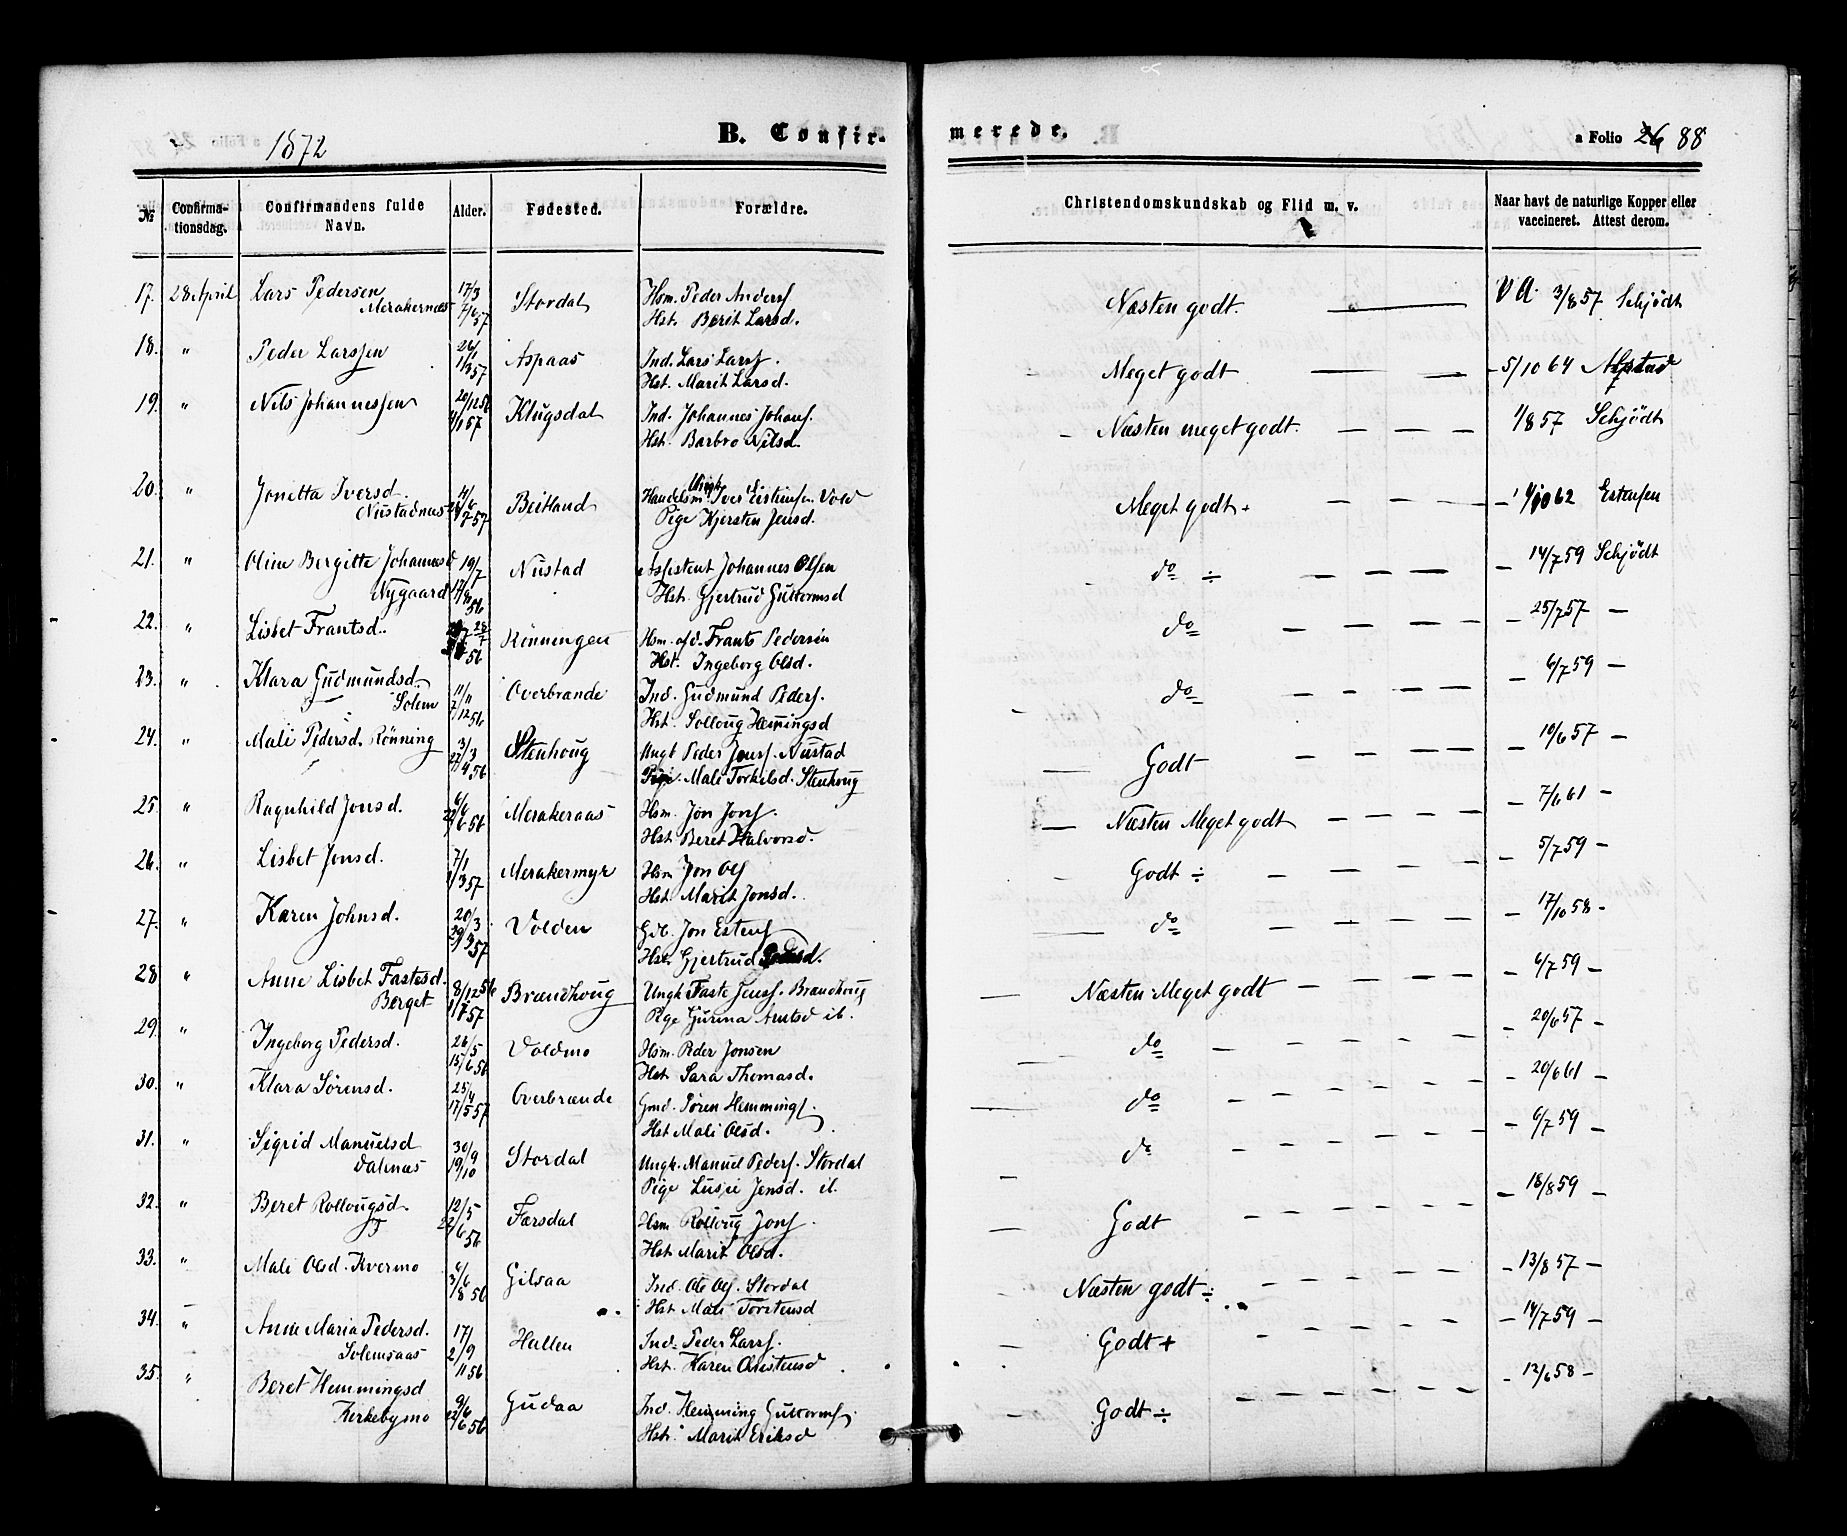 1872
B. Confirmerede.
a Folio 26 88
№ Confirmationsdag. Confirmandens fulde Navn. Alder. Fødested. Forældre. Christendomskundskab og Flid m. v. Naar havt de naturlige Kopper eller vaccineret. Attest derom.
17. 28 April Lars Pedersen 17/3 Stordal Hsm. Peder Anders. Næsten godt. — VA 3/8 57 Schjödt
Merakernæs 57 Hst. Berit Larsd.
18. " Peder Larssen 26/ Aspaas Ind. Lars Larss. Meget godt — — 5/10 64
57 Hst. Marit Larsd.
19. " Nils Johannessen 20/12 56 Klugsdal Ind. Johannes Johans. Næsten meget godt. — — — 1/8 57 Schjödt
4/1 57 Hst. Barbro Nilsd.
20. " Jonetta Iversd. Beitland Handelsm. Iver Eistensen Vold Meget godt + 62 Estensen
Nustadnæs 57 Pige Kjersten Jensd.
21. " Oline Bergitte Johannesd 19/7 Nustad Assistent Johannes Olsen do ÷ — — — 14/7 59 Schjödt
Nygaard 56 Hst. Gjertrud Guttormsd
22. " Lisbet Frantsd. Rönningen Hsm. afd. Frants Pedersen do — — — 25/7 57 —
56 Hst. Ingeborg Olsd.
23. " Klara Gudmundsd. 11/11 Overbrande Ind. Gudmund Peders. do — — — 6/7 59 —
Solem 7/12 56 Hst. Solloug Hemingsd
24. " Mali Pedersd. Rönning 3/3 Stenhoug Ungk. Peder Jons. Nustad Godt — — — 10/6 57 —
27/4 56 Pige Mali Torkelsd. Stenhoug
25. " Ragnhild Jonsd. 6/6 Merakeraas Hsm. Jon Jons. Næsten Meget godt — — — 7/6 61 —
22/6 56 Hst. Beret Halvorsd.
26. " Lisbet Jonsd. 7/1 Merakermyr Hsm Jon Ols. Godt ÷ — — — 5/7 59 —
1/3 57 Hst. Marit Jonsd.
27. " Karen Johnsd. 20/3 Volden Gdb. Jon Estens. do — — — 17/10 58 —
29/3 57 Hst. Gjertrud
28 " Anne Lisbet Fastesd. 8/12 56 Brændhoug Ungk Faste Jenss. Brændhoug Næsten Meget godt — — — 6/7 59 —
Berget 57 Pige Gurina Arntsd ib.
29. " Ingeborg Pedersd. 26/5 Voldmo Hsm. Peder Jonsen do — — — 20/6 57 —
15/6 56 Hst Sara Thomasd.
30. " Klara Sörensd. 25/4 Overbrænde Gmd. Sören Hemmings. do — — — 20/6 61 —
17/5 57 Hst Mali Olsd.
31. " Sigrid Manuelsd 30/9 Stordal Ungk. Manuel Peders. Stordal do — — — 6/7 59 —
Dalnæs 19/10 Pige Lusie Jensd. ib.
32. " Beret Rollougsd. 12/5 Færsdal Hsm Rolloug Jons. Godt — — — 18/8 59 —
22/6 56 Hst Marit Olsd.
33. " Mali Olsd. Kvermo 6/6 Gilsaa Ind. Ole Ols. Stordal Næsten godt ÷ — — — 13/8 57 —
3/8 56 Hst Mali Torstensd
34. " Anne Maria Pedersd. 17/9 Hallen Ind. Peder Larss. Godt + — — — 14/7 59 —
Solemsaas 2/11 56 Hst. Karen Christensd
35. " Beret Hemmingsd 9/6 Gudaa Ind. Hemming Guttorms. Godt ÷ — — — 12/6 58 —
Kirkebymo 22/6 56 Hst. Marit Eriksd